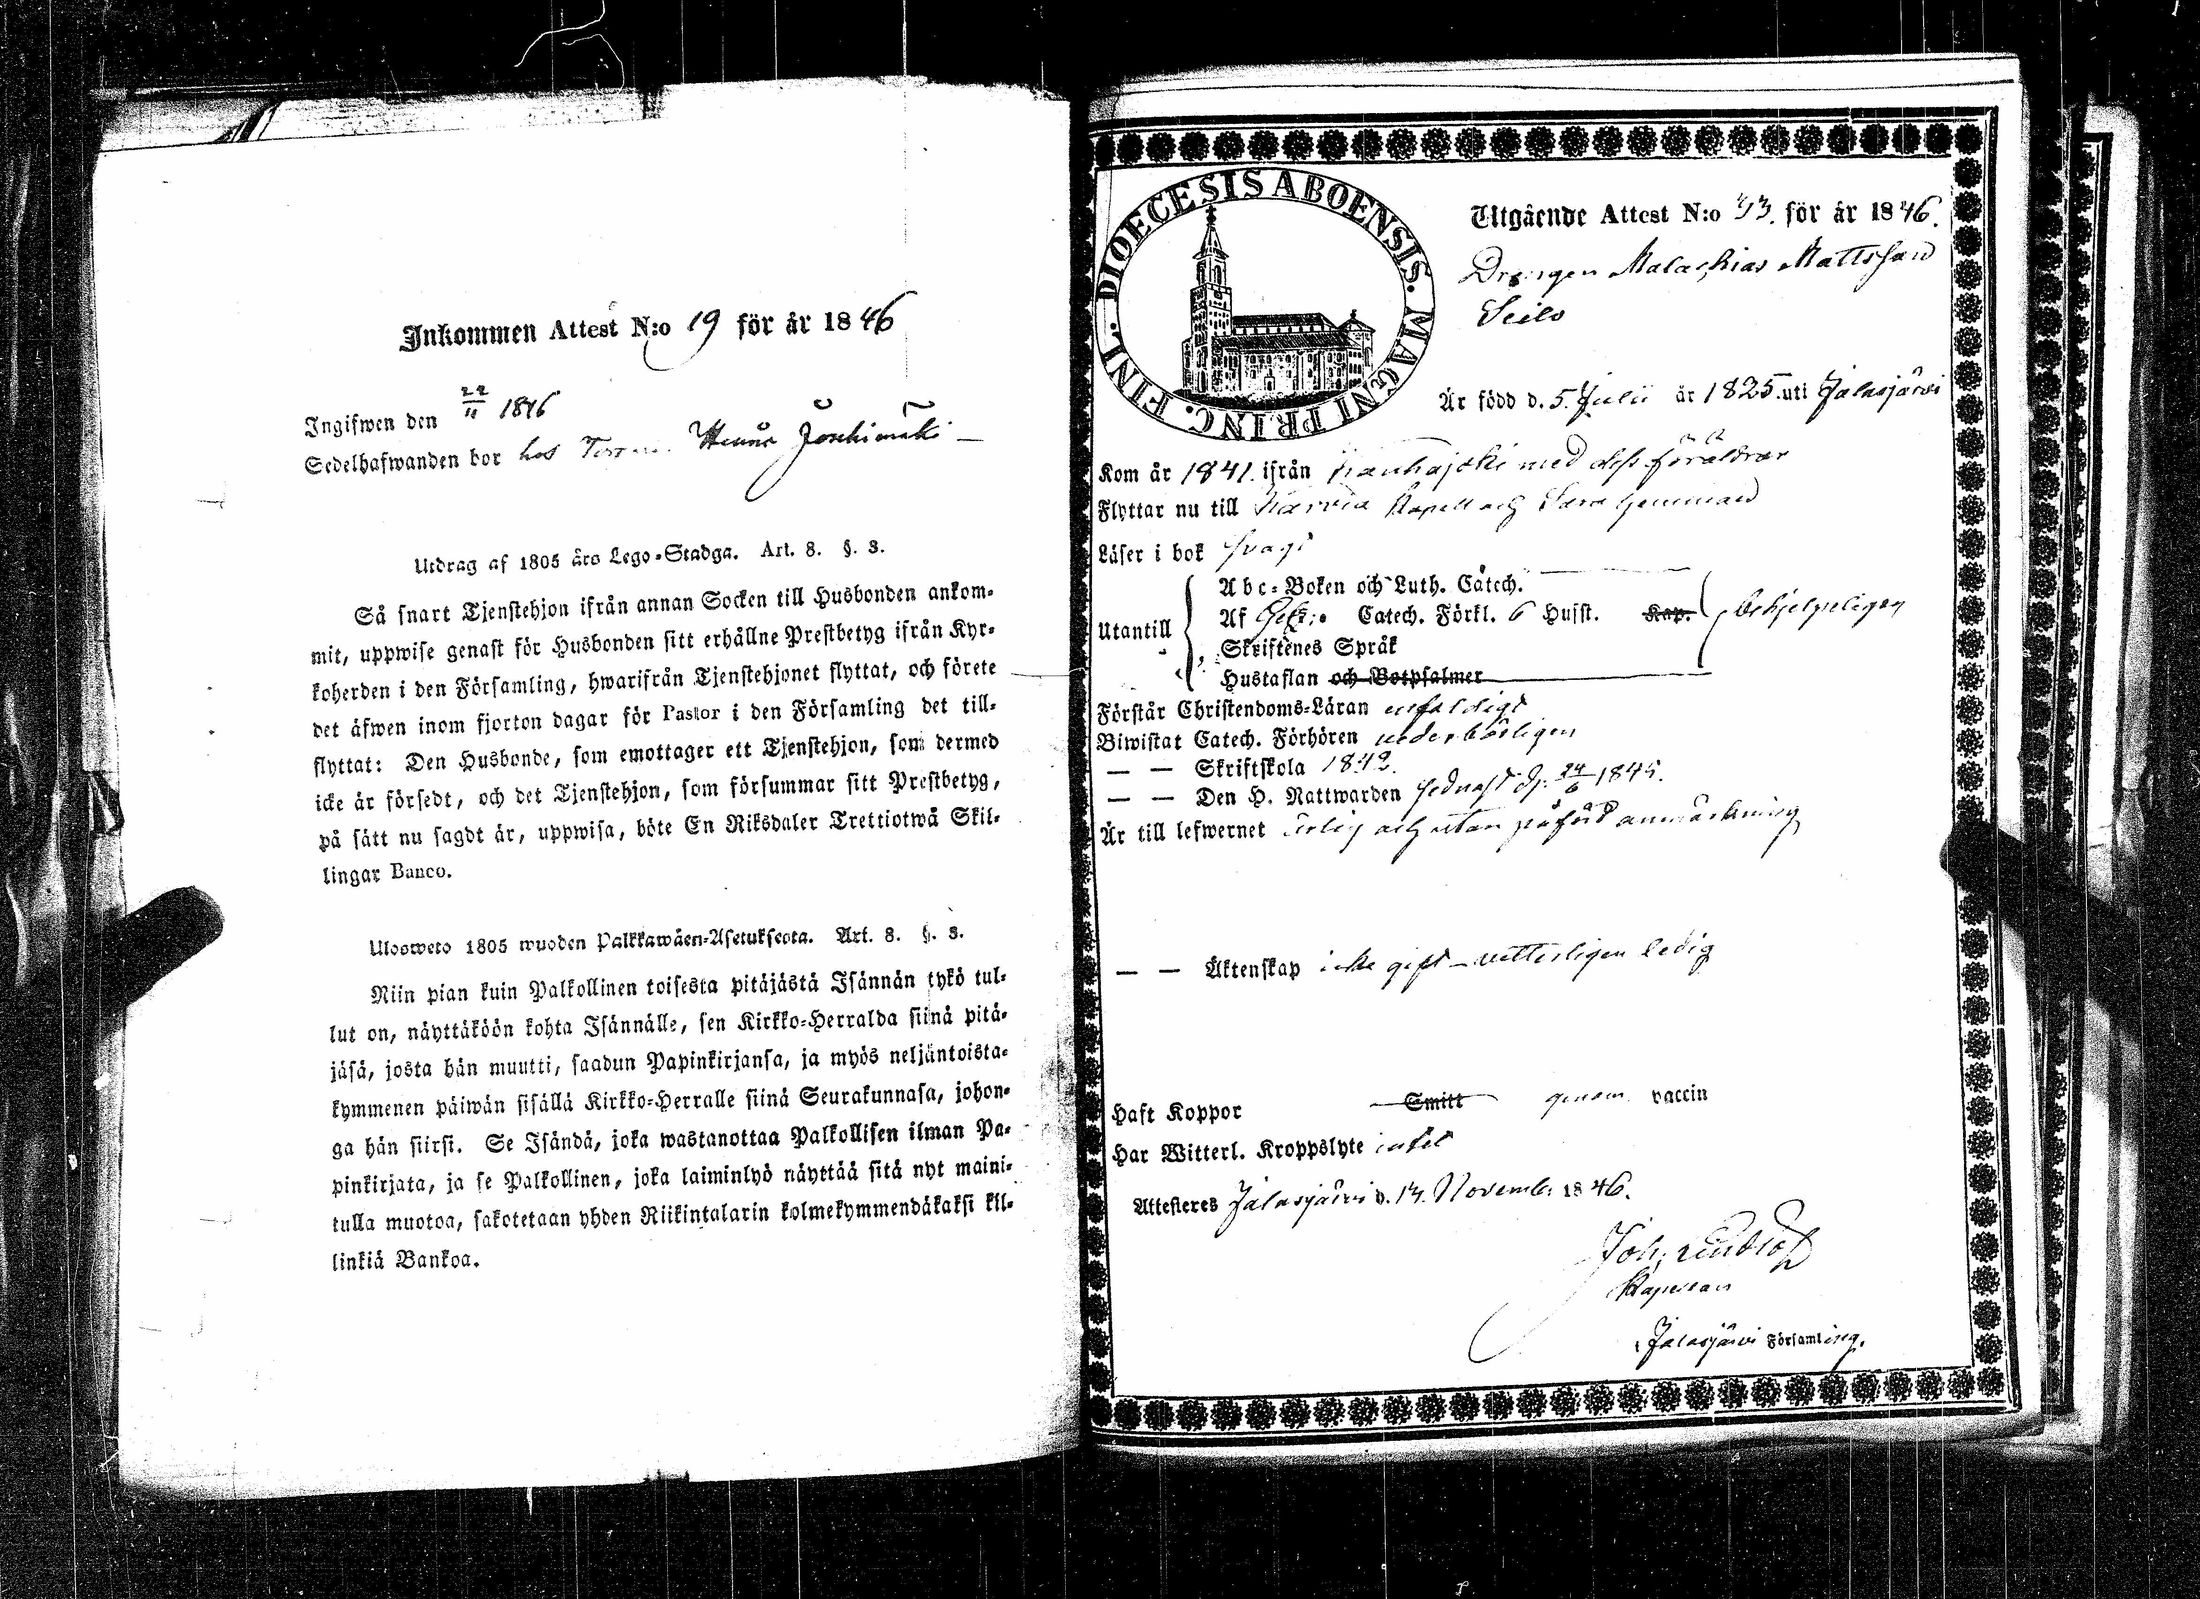 Inkommen Attest N:o 19 för år 1846
Ingifwen den 22/11 1846
Sedelhafwanden bor hos
Utdrag af 1805 års Lego-Stadga. Art. 8. §. 3.
Så snart Tjenstehjon ifrån annan Socken till Husbonden ankom-
mit, uppwise genast för Husbonden sitt erhållne Prestbetyg ifrån Kyr-
koherden i den Församling, hwarifrån Tjenstehjonet flyttat, och förete
det äfwen inom fjorton dagar för Pastor i den Församling det till-
flyttat: Den Husbonde, som emottager ett Tjenstehjon, som dermed
icke är försedt, och det Tjenstehjon, som försummar sitt Prestbetyg,
på sätt nu sagdt är, uppwisa, böte En Riksdaler Trettiotwå Skil-
lingar Banco.
Ulosweto 1805 wuoden Palkkawäen-Asetuksesta. Art. 8. §. 3.
Niin pian kuin Palkollinen toisesta pitäjästä Isännän tykö tul-
lut on, näyttäköön kohta Isännälle, sen Kirkko-Herralda siinä pitä-
jäsä, josta hän muutti, saadun Papinkirjansa, ja myös neljäntoista-
kymmenen päiwän sisällä Kirkko-Herralle siinä Seurakunnasa, johon-
ga hän siirsi. Se Isändä, joka wastanottaa Palkollisen ilman Pa-
pinkirjata, ja se Palkollinen, joka laiminlyö näyttää sitä nyt maini-
tulla muotoa, sakotetaan yhden Riikintalarin kolmekymmendäkaksi kil-
linkiä Bankoa.
DIOECESIS ABOENSIS. MAGNI PRINC. FINL.
Utgående Attest N:o 93. för år 1846.
Drängen Malachias Mattsson
Seilo
Är född d. 5. Julii år 1825. uti Jalasjärvi
Kom år 1841. ifrån Kauhajoki med dess föräldrar
Flyttar nu till Karvia Kapell och
Läser i bok svagt
Utantill
Abc-Boken och Luth. Catech.
Af Catech. Förkl. 6 Hufst. Kap. behjelpeligen
Skriftenes Språk
Hustaflan och Botpsalmer
Förstår Christendoms-Läran enfaldigt
Biwistat Catech. Förhören vederbörligen
— — Skriftskola 1842.
— — Den H. Nattwarden sednast d. 24/6 1845.
Är till lefwernet ärlig och utan påförd anmärkning
— — Äktenskap icke gift - vitterligen ledig
Haft Koppor Smitt genom vaccin
Har Witterl. Kroppslyte intet
Attesteres Jalasjärvi d. 14. Novemb. 1846.
Joh. Lindlöf
Kapellan
i Jalasjärvi Församling.